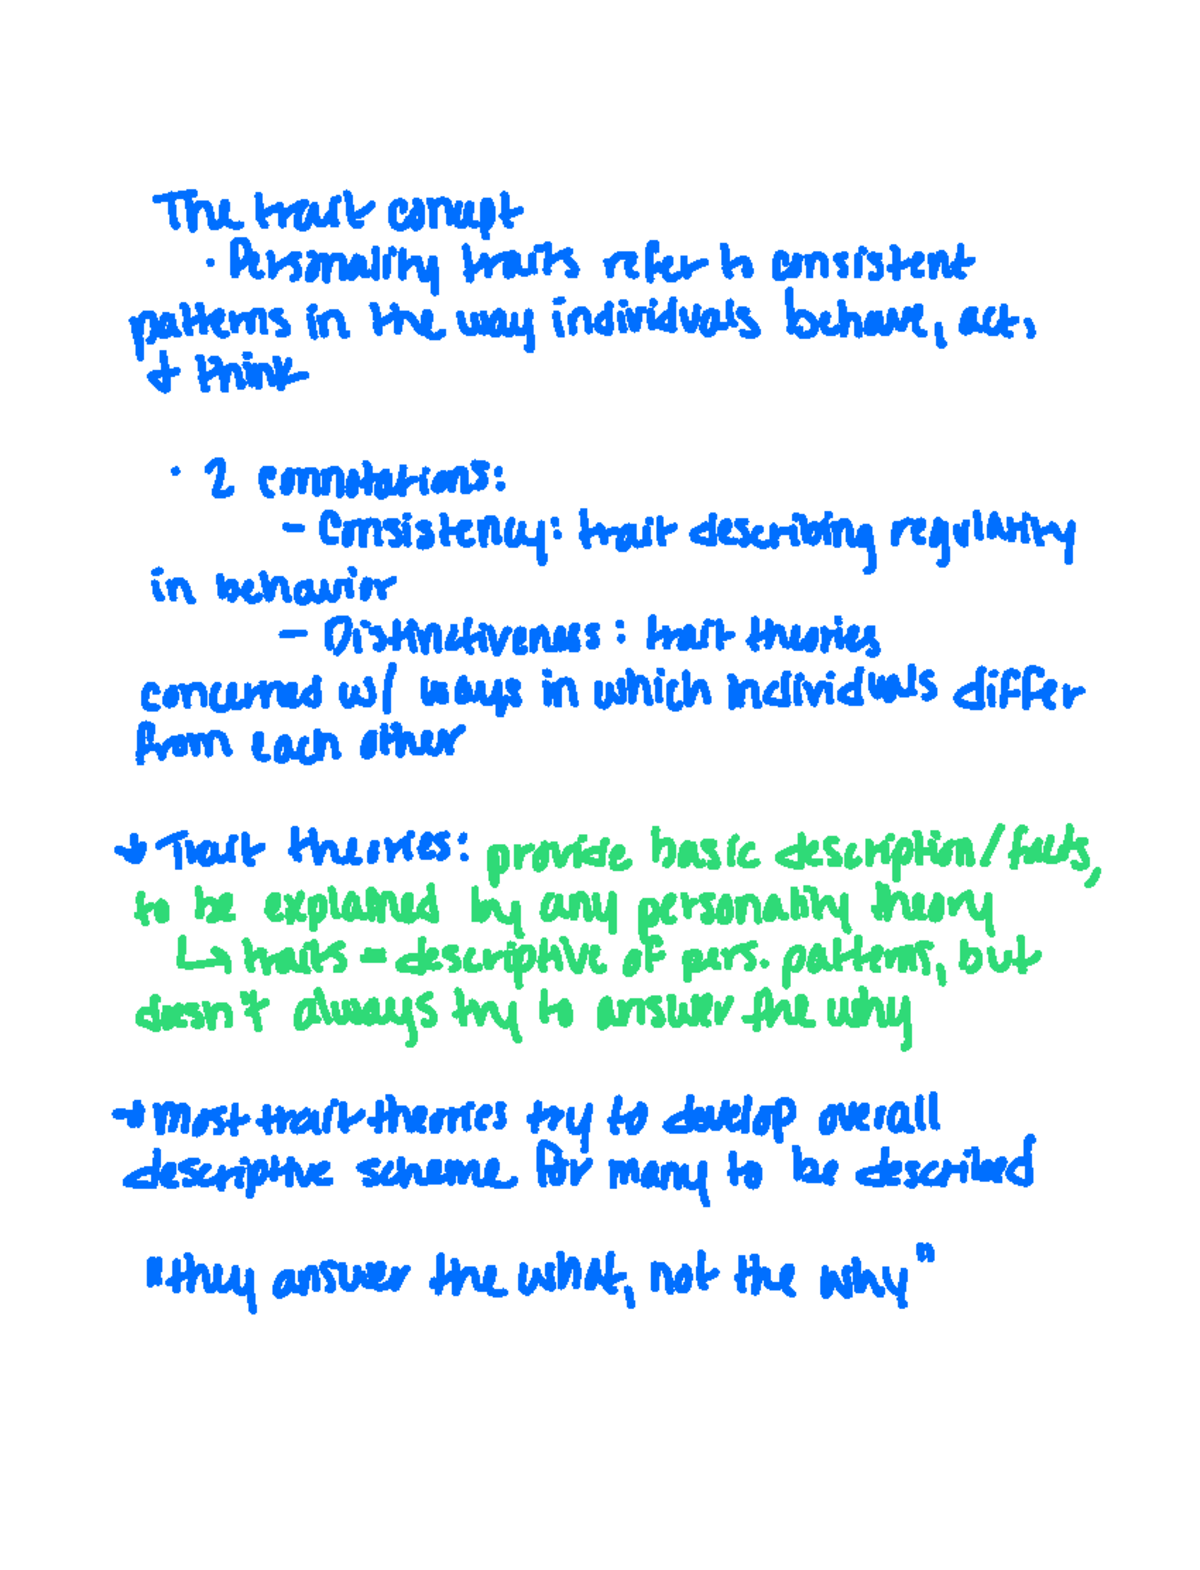 The trait concept
· Personality traits refer to consistent
patterns in the way individuals behave, act,
+ think
· 2 connotations:
- Consistency: trait describing regularity
in behavior
- Distinctiveness: trait theories
concerned w/ ways in which individuals differ
from each other
→ Trait theories: provide basic description/facts,
to be explained by any personality theory
↳ traits = descriptive of pers. patterns, but
doesn't always try to answer the why
→ Most trait theories try to develop overall
descriptive scheme for many to be described
"they answer the what, not the why"